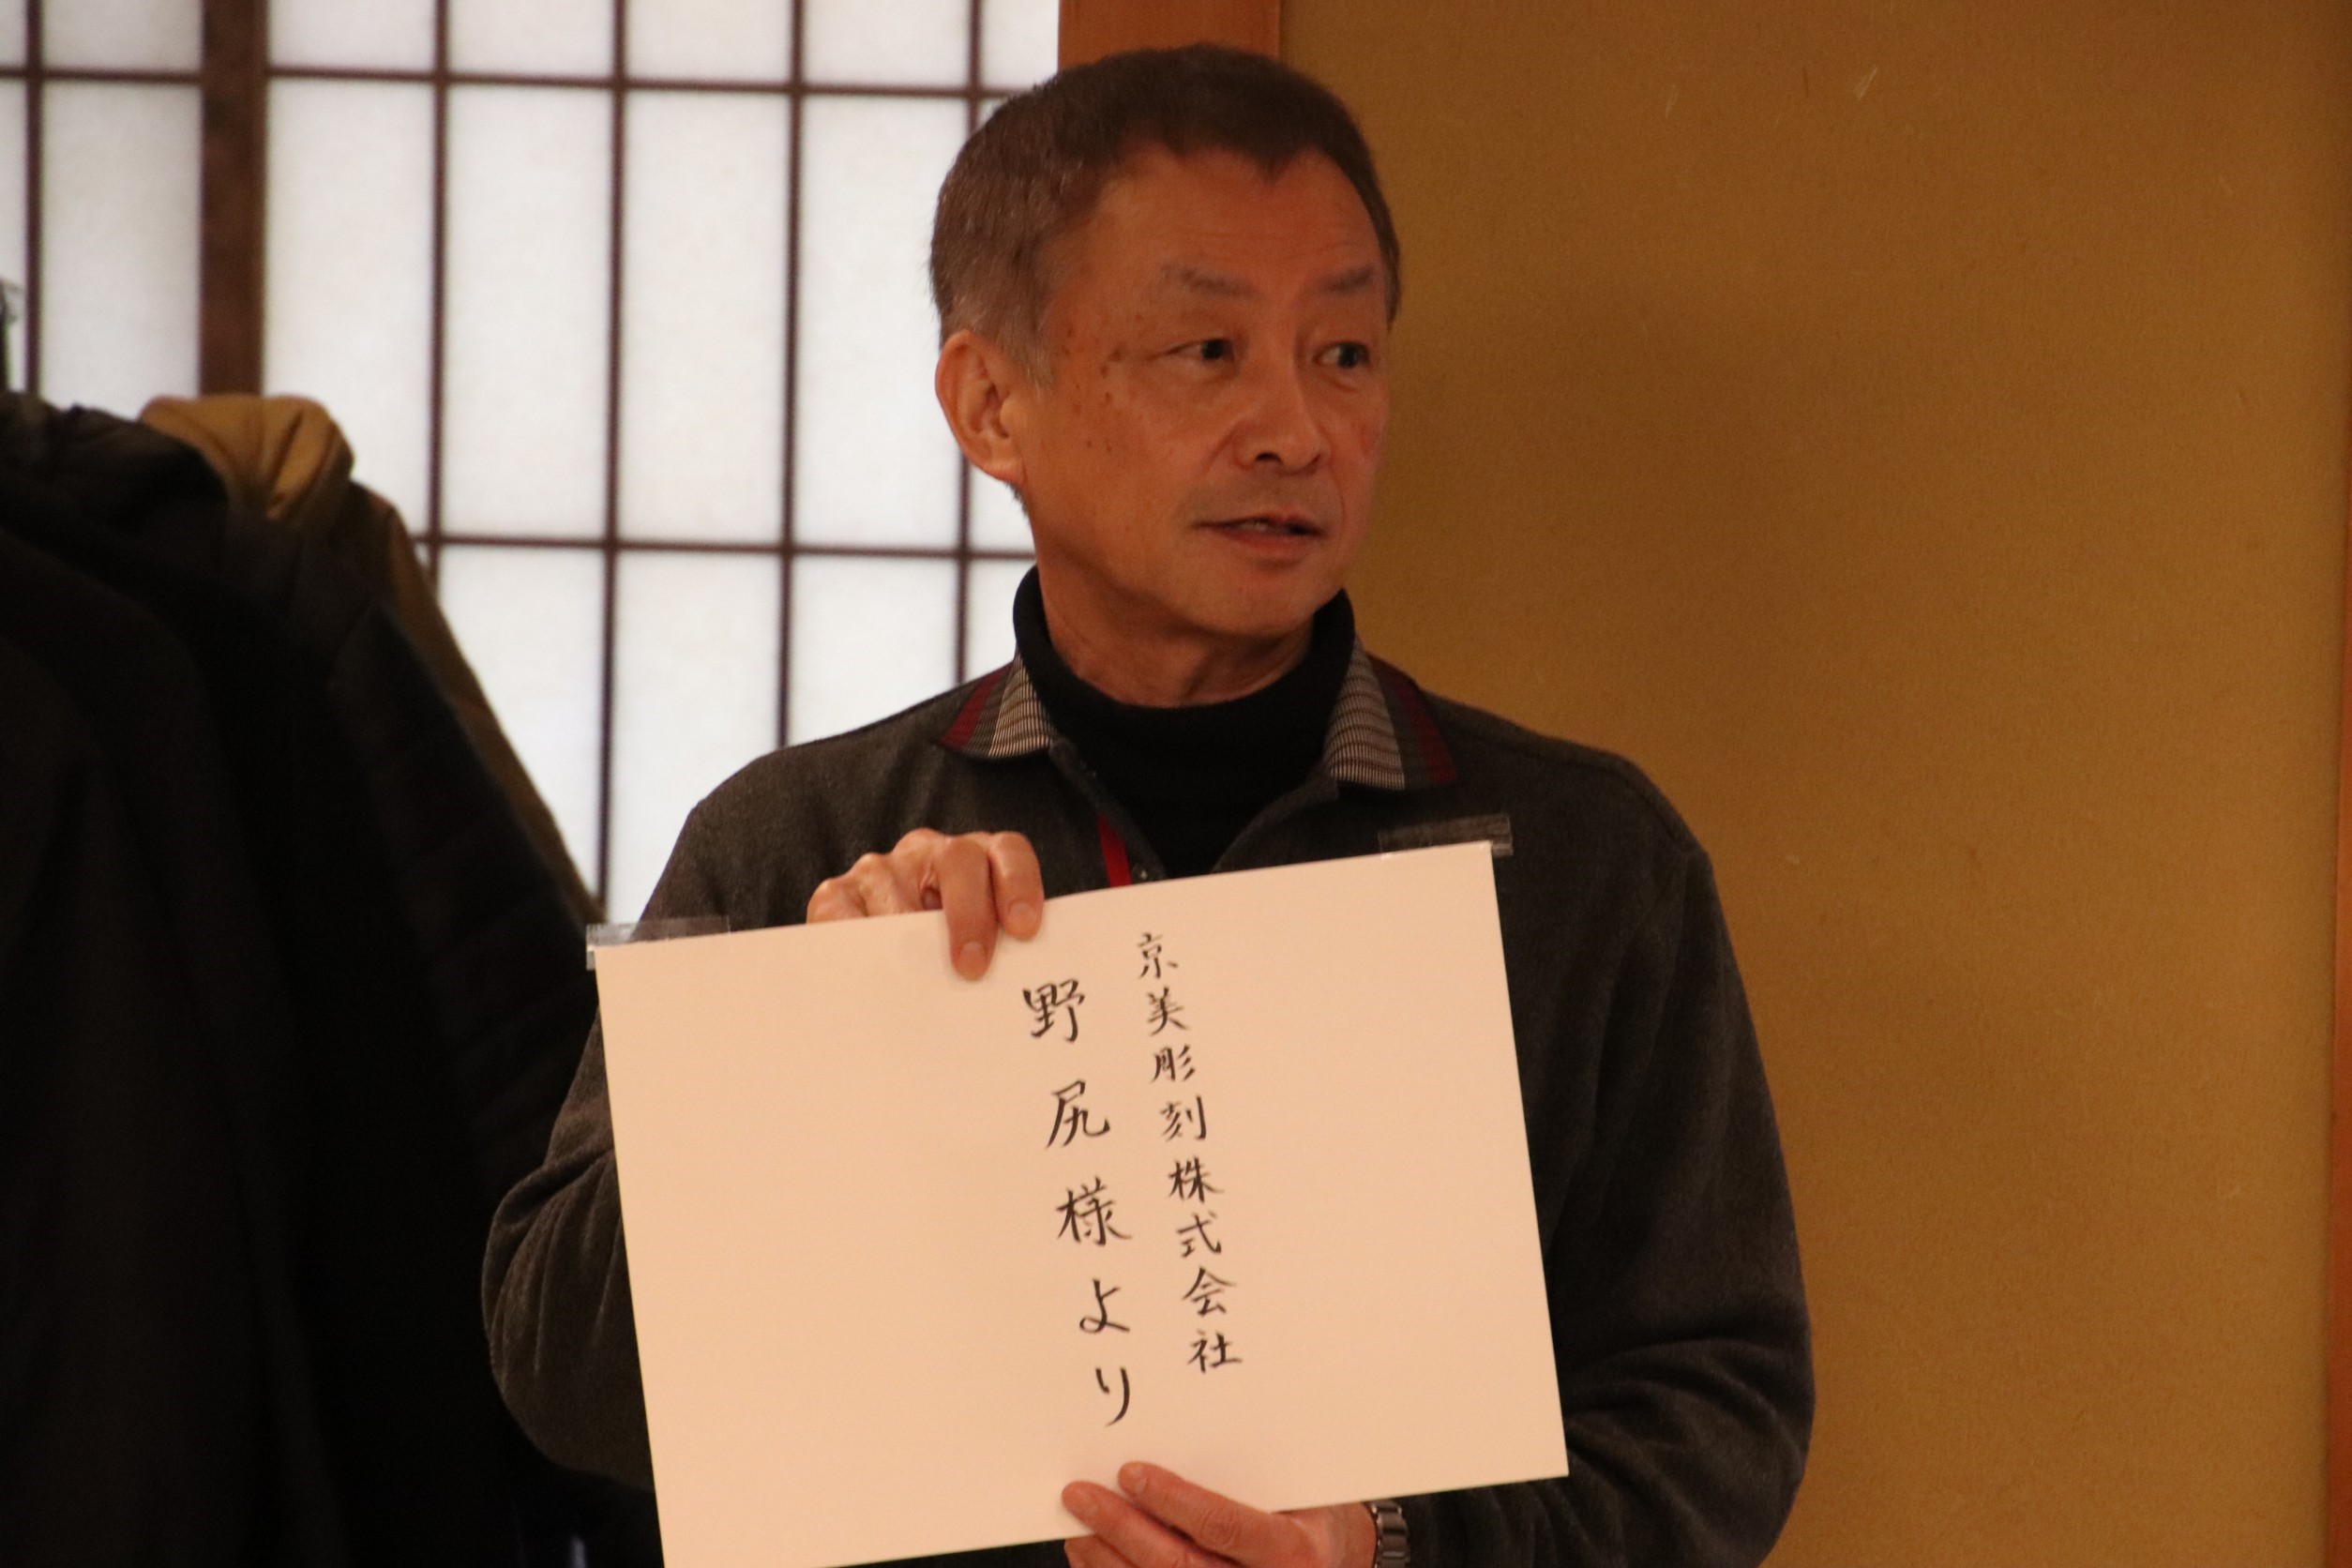 京美彫刻株式会社
野尻様より